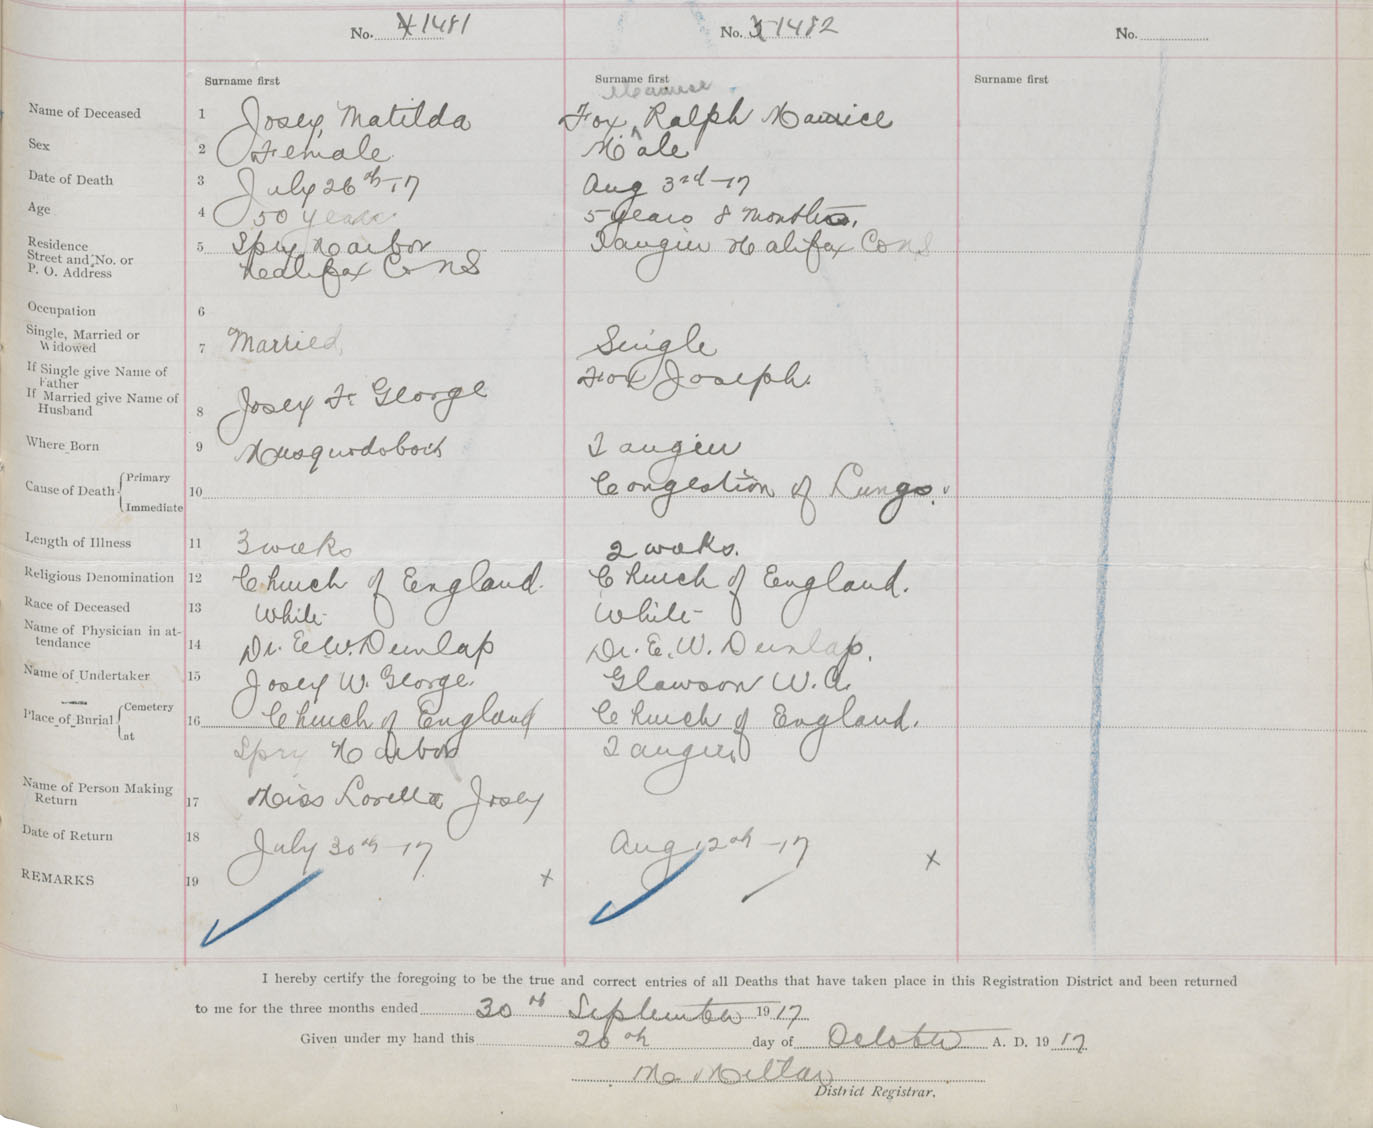 No. 1481
No. 1482
No.
Surname first
Surname first
Surname first
Maurice
Name of Deceased 1 Josey, Matilda Fox, Ralph Maurice
Sex 2 Female Male
Date of Death 3 July 26th-17 Aug 3rd-17
Age 4 50 years 5 years 8 months.
Residence
Street and No. or
P. O. Address
5 Spry Harbor Tangier Halifax Co NS
Halifax Co NS
Occupation 6
Single, Married or
Widowed
7 Married Single
If Single give Name of
Father
Fox Joseph.
If Married give Name of
Husband
8 Josey F. George
Where Born 9 Musquodoboit Tangier
Cause of Death Primary
Immediate
10 Congestion of Lungs.
Length of Illness 11 3 weeks 2 weeks.
Religious Denomination 12 Church of England. Church of England.
Race of Deceased 13 White White
Name of Physician in at-
tendance
14 Dr. E.W. Dunlap Dr. E. W. Dunlap.
Name of Undertaker 15 Josey W. George. Glawson W.A.
Place of Burial Cemetery
at
16 Church of England Church of England.
Spry Harbor Tangier.
Name of Person Making
Return
17 Miss Loretta Josey
Date of Return 18 July 30th-17 Aug 12th-17
REMARKS 19 x x
I hereby certify the foregoing to be the true and correct entries of all Deaths that have taken place in this Registration District and been returned
to me for the three months ended 30th September 1917
Given under my hand this 20th day of October A. D. 1917
District Registrar.